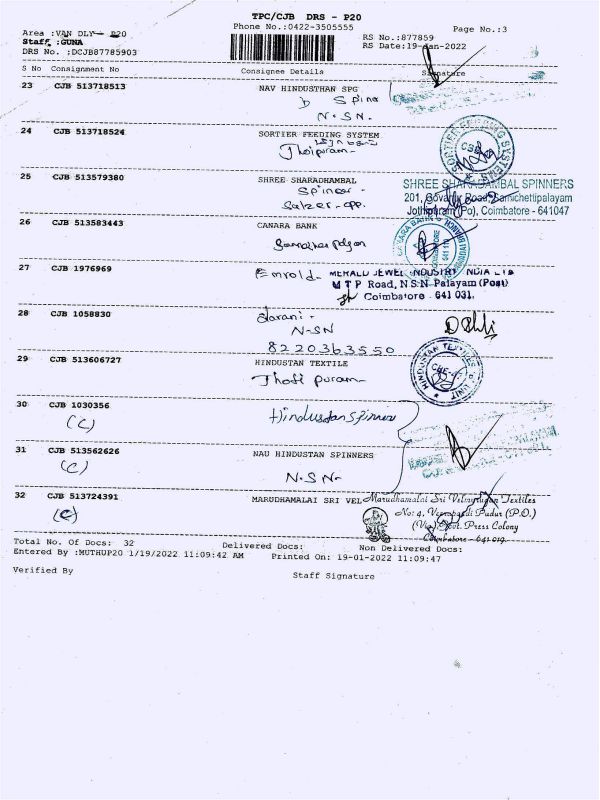 TPC/CJB DRS - P20
Phone No.:0422-3505555
Page No.:3
Area :VAN DLY - P20
Staff :GUNA
DRS No. :DCJB87785903
RS No.:877859
RS Date:19-Jan-2022
S No Consignment No Consignee Details Signature
23 CJB 513718513 NAV HINDUSTHAN SPG
N.SN.
24 CJB 513718524 SORTIER FEEDING SYSTEM
SORTIER FEEDING SYSTEMS
25 CJB 513579380 SHREE SHARADHAMBAL
SHREE SHARADAMBAL SPINNERS
201, Govanur Road, Samichettipalayam
Jothipuram (Po), Coimbatore - 641047
26 CJB 513583443 CANARA BANK
27 CJB 1976969
MERALD JEWEL INDUSTRY INDIA LTD
M T P Road, N.S.N. Palayam (Post)
Coimbatore - 641 031.
28 CJB 1058830
N-SN
8220363550
29 CJB 513606727 HINDUSTAN TEXTILE
HINDUSTAN TEXTILES
30 CJB 1030356
(C)
Hindustan Spinners
31 CJB 513562626 NAU HINDUSTAN SPINNERS
(C)
N.SN-
32 CJB 513724391 MARUDHAMALAI SRI VEL
(C)
Marudhamalai Sri Velmurugan Textiles
No: 4, Veerapandi Pudur (P.O.)
(Via) Govt. Press Colony
Coimbatore - 641 019.
Total No. Of Docs: 32 Delivered Docs: Non Delivered Docs:
Entered By :MUTHUP20 1/19/2022 11:09:42 AM Printed On: 19-01-2022 11:09:47
Verified By
Staff Signature